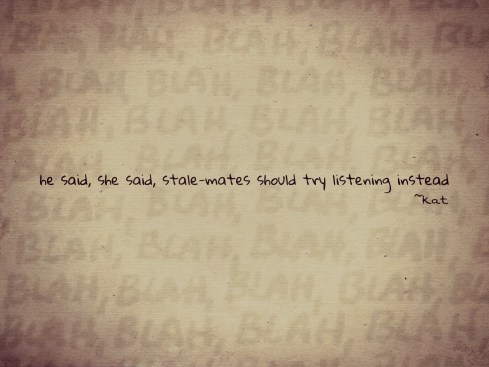 BLAH, BLAH, BLAH, BLAH,
BLAH, BLAH, BLAH, BLAH
BLAH, BLAH, BLAH, BLAH,
he said, she said, stale-mates should try listening instead
~kat
BLAH, BLAH, BLAH, BLAH,
BLAH, BLAH, BLAH, BLAH,
BLAH, BLAH, BLAH, BLAH,
BLAH, BLAH, BLAH, BLAH,